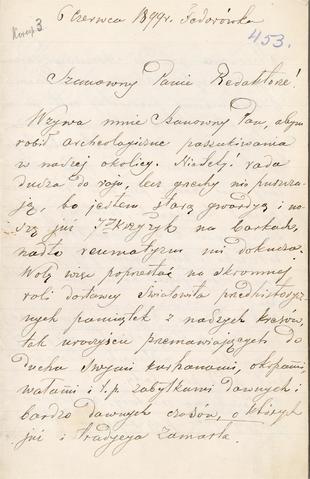 6 Czerwca 1899r. Fedorówka
453.
Szanowny Panie Redaktorze!
Wzywa mnie Szanowny Pan, abym
robił archeologiczne poszukiwania
w naszej okolicy. Niestety! rada
dusza do raju, lecz grzechy nie puszcza-
ją, bo jestem starą gwardyą i no-
szę już 7my krzyżyk na barkach,
nadto reumatyzm mi dokucza.
Wolę więc poprzestać na skromnej
roli dostawcy Światowita przedhistorycz-
nych pamiątek z naszych krajów,
tak uroczyście przemawiających do
ducha swymi kurhanami, okopami,
wałami i t.p. zabytkami dawnych i
bardzo dawnych czasów, o których
już i tradycya zamarła.